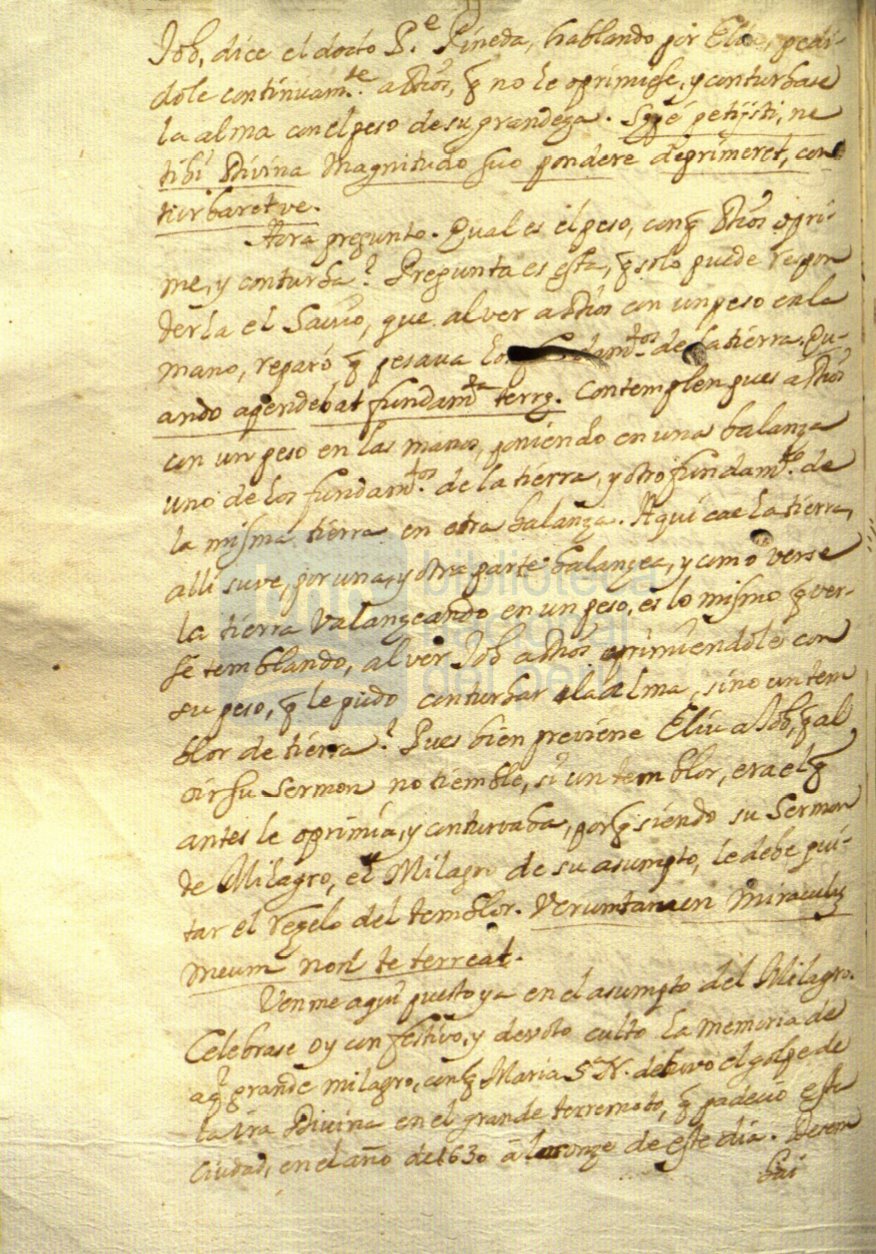 Job, dice el docto P.e Pineda, hablando por Eliu, pedi-
dole continuam.te a Dios, q no le oprimiese, y conturbase
la alma con el peso de su grandeza. Sæpè petijsti, ne
tibi Divina Magnitudo suo pondere deprimeret, con
turbaretve.
Aora pregunto. Qual es el peso, con q Dios opri-
me, y conturba? Pregunta es esta, q solo puede respon
derla el Savio, que al ver a Dios con un peso en la
mano, reparó q pesava los fundam.tos de la tierra. Qu-
ando apendebat fundam.ta terrę. Contemplen pues a Dios
con un peso en las manos, poniendo en una balanza
uno de los fundam.tos de la tierra, y otro fundam.to de
la misma tierra en otra balanza. Aqui cae la tierra,
alli suve, por una, y otra parte balanzea, y como verse
la tierra valanzeando en un peso, es lo mismo q ver-
se temblando, al ver Job a Dios oprimiendole con
su peso, q le pudo conturbar a la alma, sino un tem
blor de tierra? Pues bien previene Eliu a Job, q al
oir su Sermon no tiemble, si un temblor, era el q
antes le oprimia, y conturvaba, porq siendo su Sermon
de Milagro, el Milagro de su asumpto, le debe qui-
tar el rezelo del temblor. Veruntamen miraculũ
meum non te terreat.
Venme aqui puesto ya en el asumpto del Milagro.
Celebrase oy con festivo, y devoto culto la memoria de
aql grande milagro, con q Maria S.N. detuvo el golpe de
la ira Divina en el grande terremoto, q padeció esta
Ciudad, en el año de 1630 a las onze de este dia. Derem
bai
biblioteca
nacional
del perú